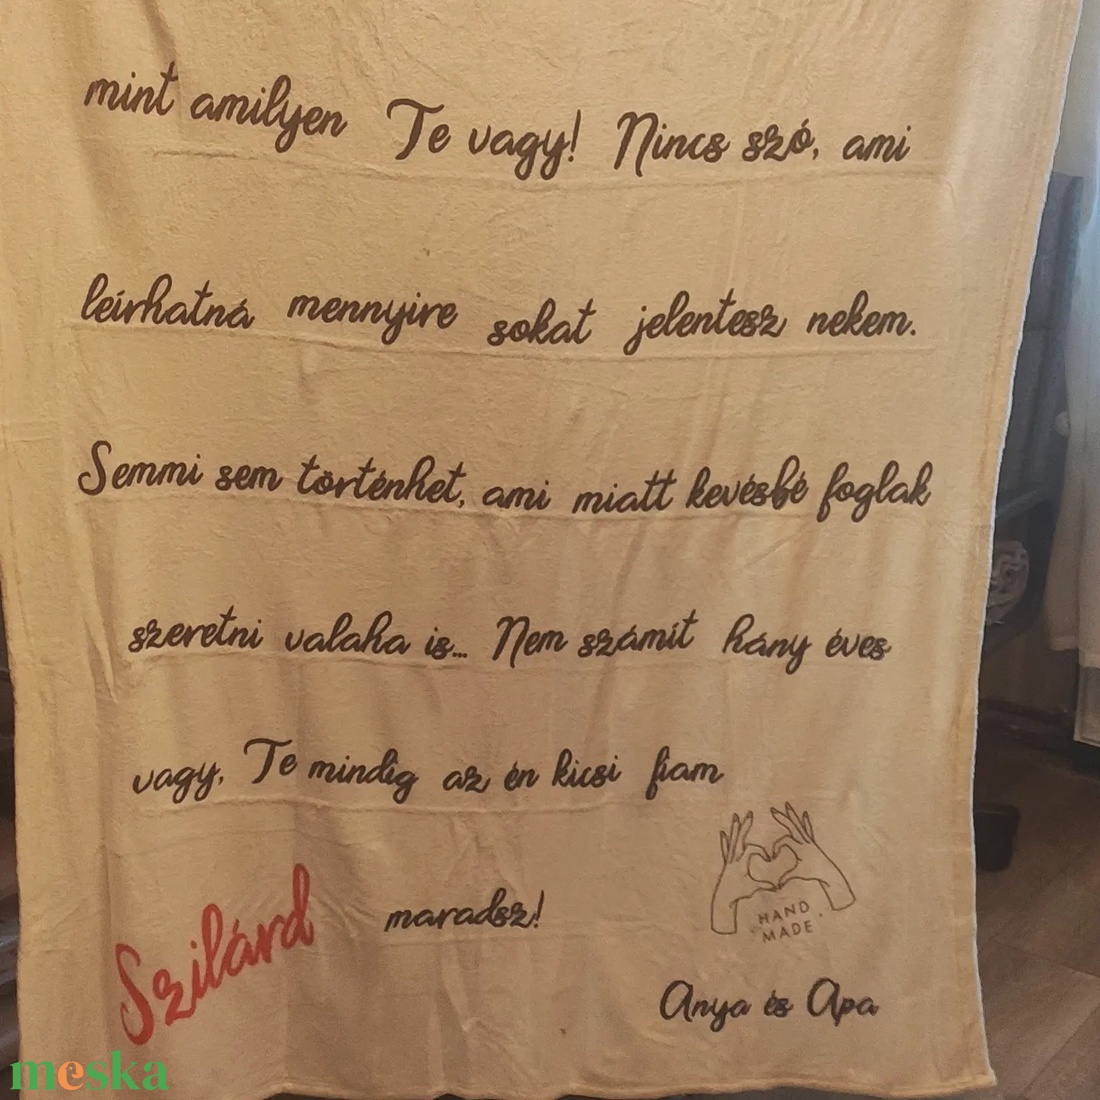 mint amilyen Te vagy! Nincs szó, ami
leírhatná mennyire sokat jelentesz nekem.
Semmi sem történhet, ami miatt kevésbé foglak
szeretni valaha is... Nem számít hány éves
vagy, Te mindig az én kicsi fiam
maradsz!
Szilárd
HAND
MADE
Anya és Apa
meska